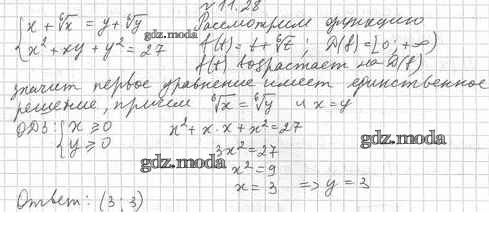 √11.28
{x + ⁶√x = y + ⁶√y
{x² + xy + y² = 27
gdz.moda
Рассмотрим функцию
f(t) = t + ⁶√t ; D(f) = [0; +∞)
f(t) возрастает на D(f)
значит первое уравнение имеет единственное
решение, причем ⁶√x = ⁶√y и x = y
ОДЗ: {x ≥ 0
{y ≥ 0
x² + x·x + x² = 27
gdz.moda
3x² = 27
gdz.moda
x² = 9
x = 3 => y = 3
Ответ: (3; 3)